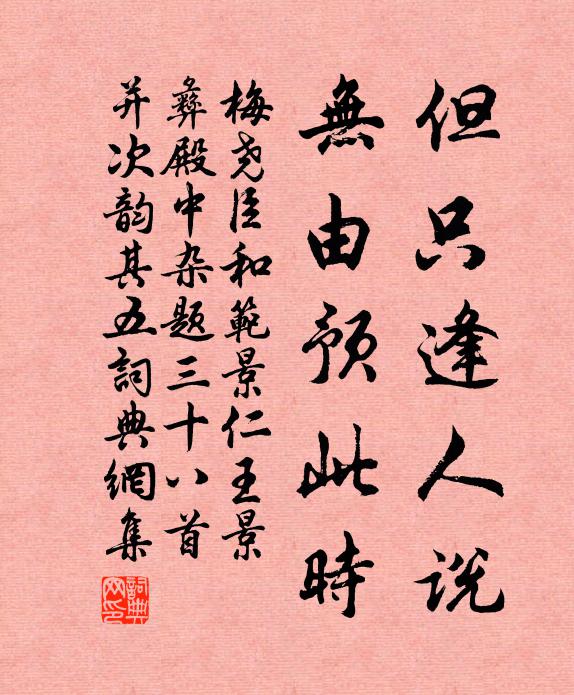 但只逢人说
無由預此時
梅尧臣和範景仁王景
彝殿中杂题三十八首
并次韵其五詞典網集
詞典網印